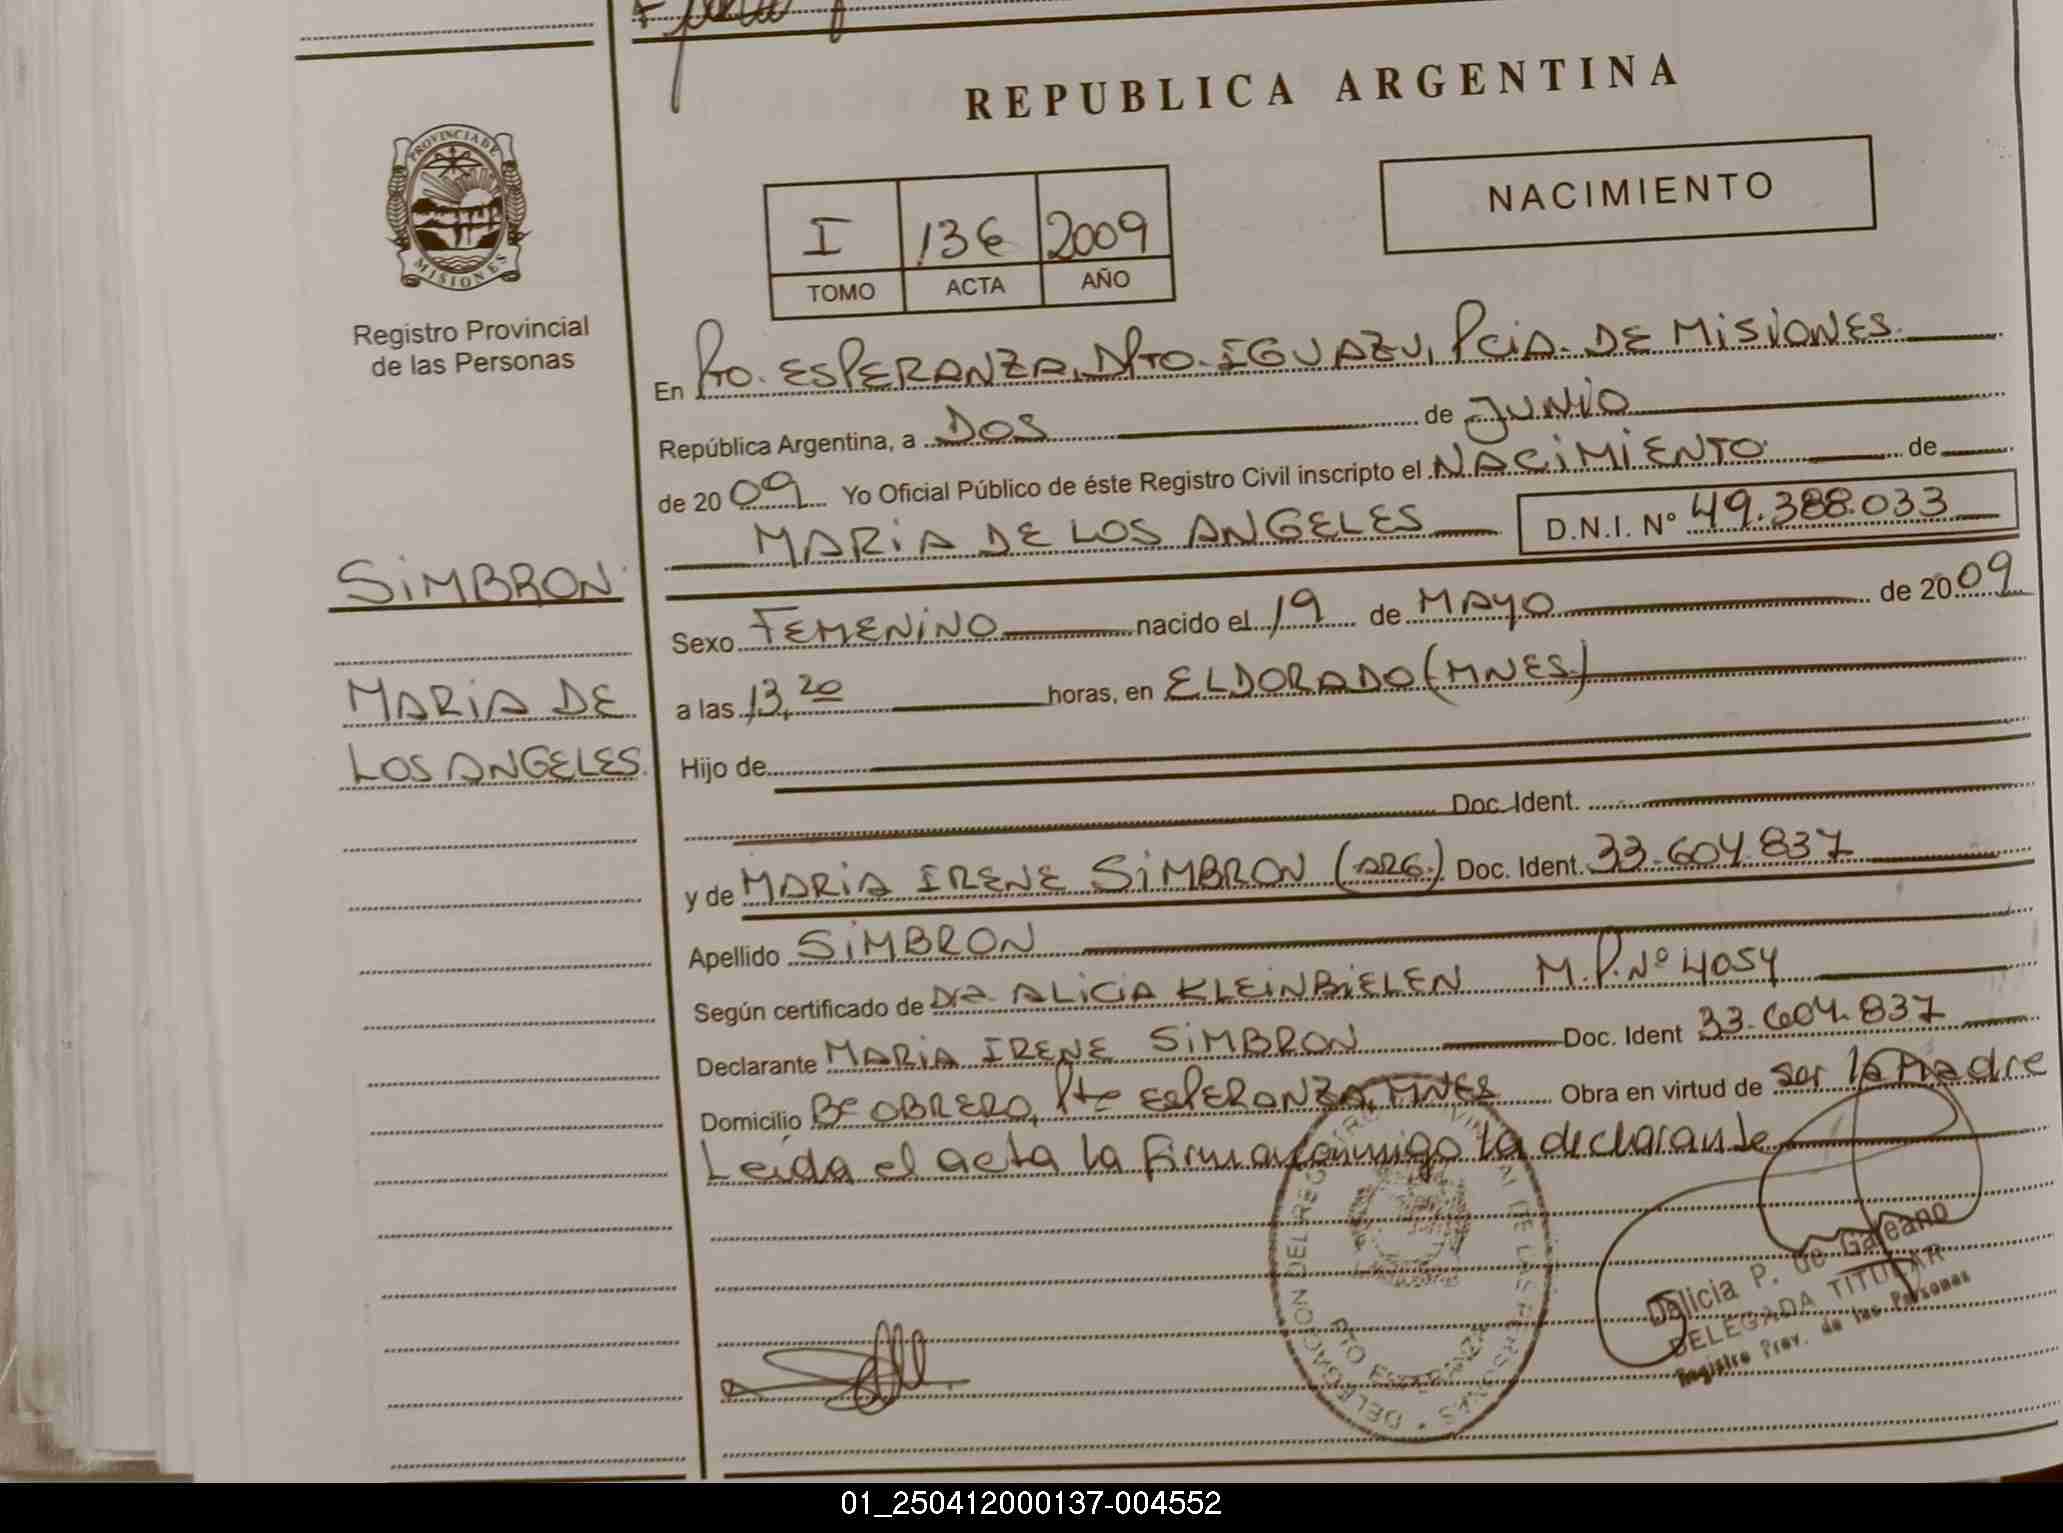 REPUBLICA ARGENTINA
PROVINCIA DE
MISIONES
Registro Provincial
de las Personas
NACIMIENTO
I 136 2009
TOMO ACTA AÑO
En Pto. ESPERANZA, DPTO. IGUAZU, PCIA. DE MISIONES.
República Argentina, a DOS de JUNIO
de 2009 Yo Oficial Público de éste Registro Civil inscripto el NACIMIENTO de
MARIA DE LOS ANGELES D.N.I. Nº 49.388.033
SIMBRON
MARIA DE
LOS ANGELES.
Sexo FEMENINO nacido el 19 de MAYO de 2009
a las 13,20 horas, en ELDORADO (MNES.)
Hijo de
Doc. Ident.
y de MARIA IRENE SIMBRON (ARG.) Doc. Ident. 33.604.837
Apellido SIMBRON
Según certificado de DRA. ALICIA KLEINBIELEN M.P. Nº 4054
Declarante MARIA IRENE SIMBRON Doc. Ident 33.604.837
Domicilio Bº OBRERO, Pto ESPERANZA, MNES Obra en virtud de ser la Madre
Leída el acta la firma conmigo la declarante
DELEGACION DEL REGISTRO PROVINCIAL DE LAS PERSONAS
PTO ESPERANZA
Dalicia P. de Galeano
DELEGADA TITULAR
Registro Prov. de las Personas
01_250412000137-004552